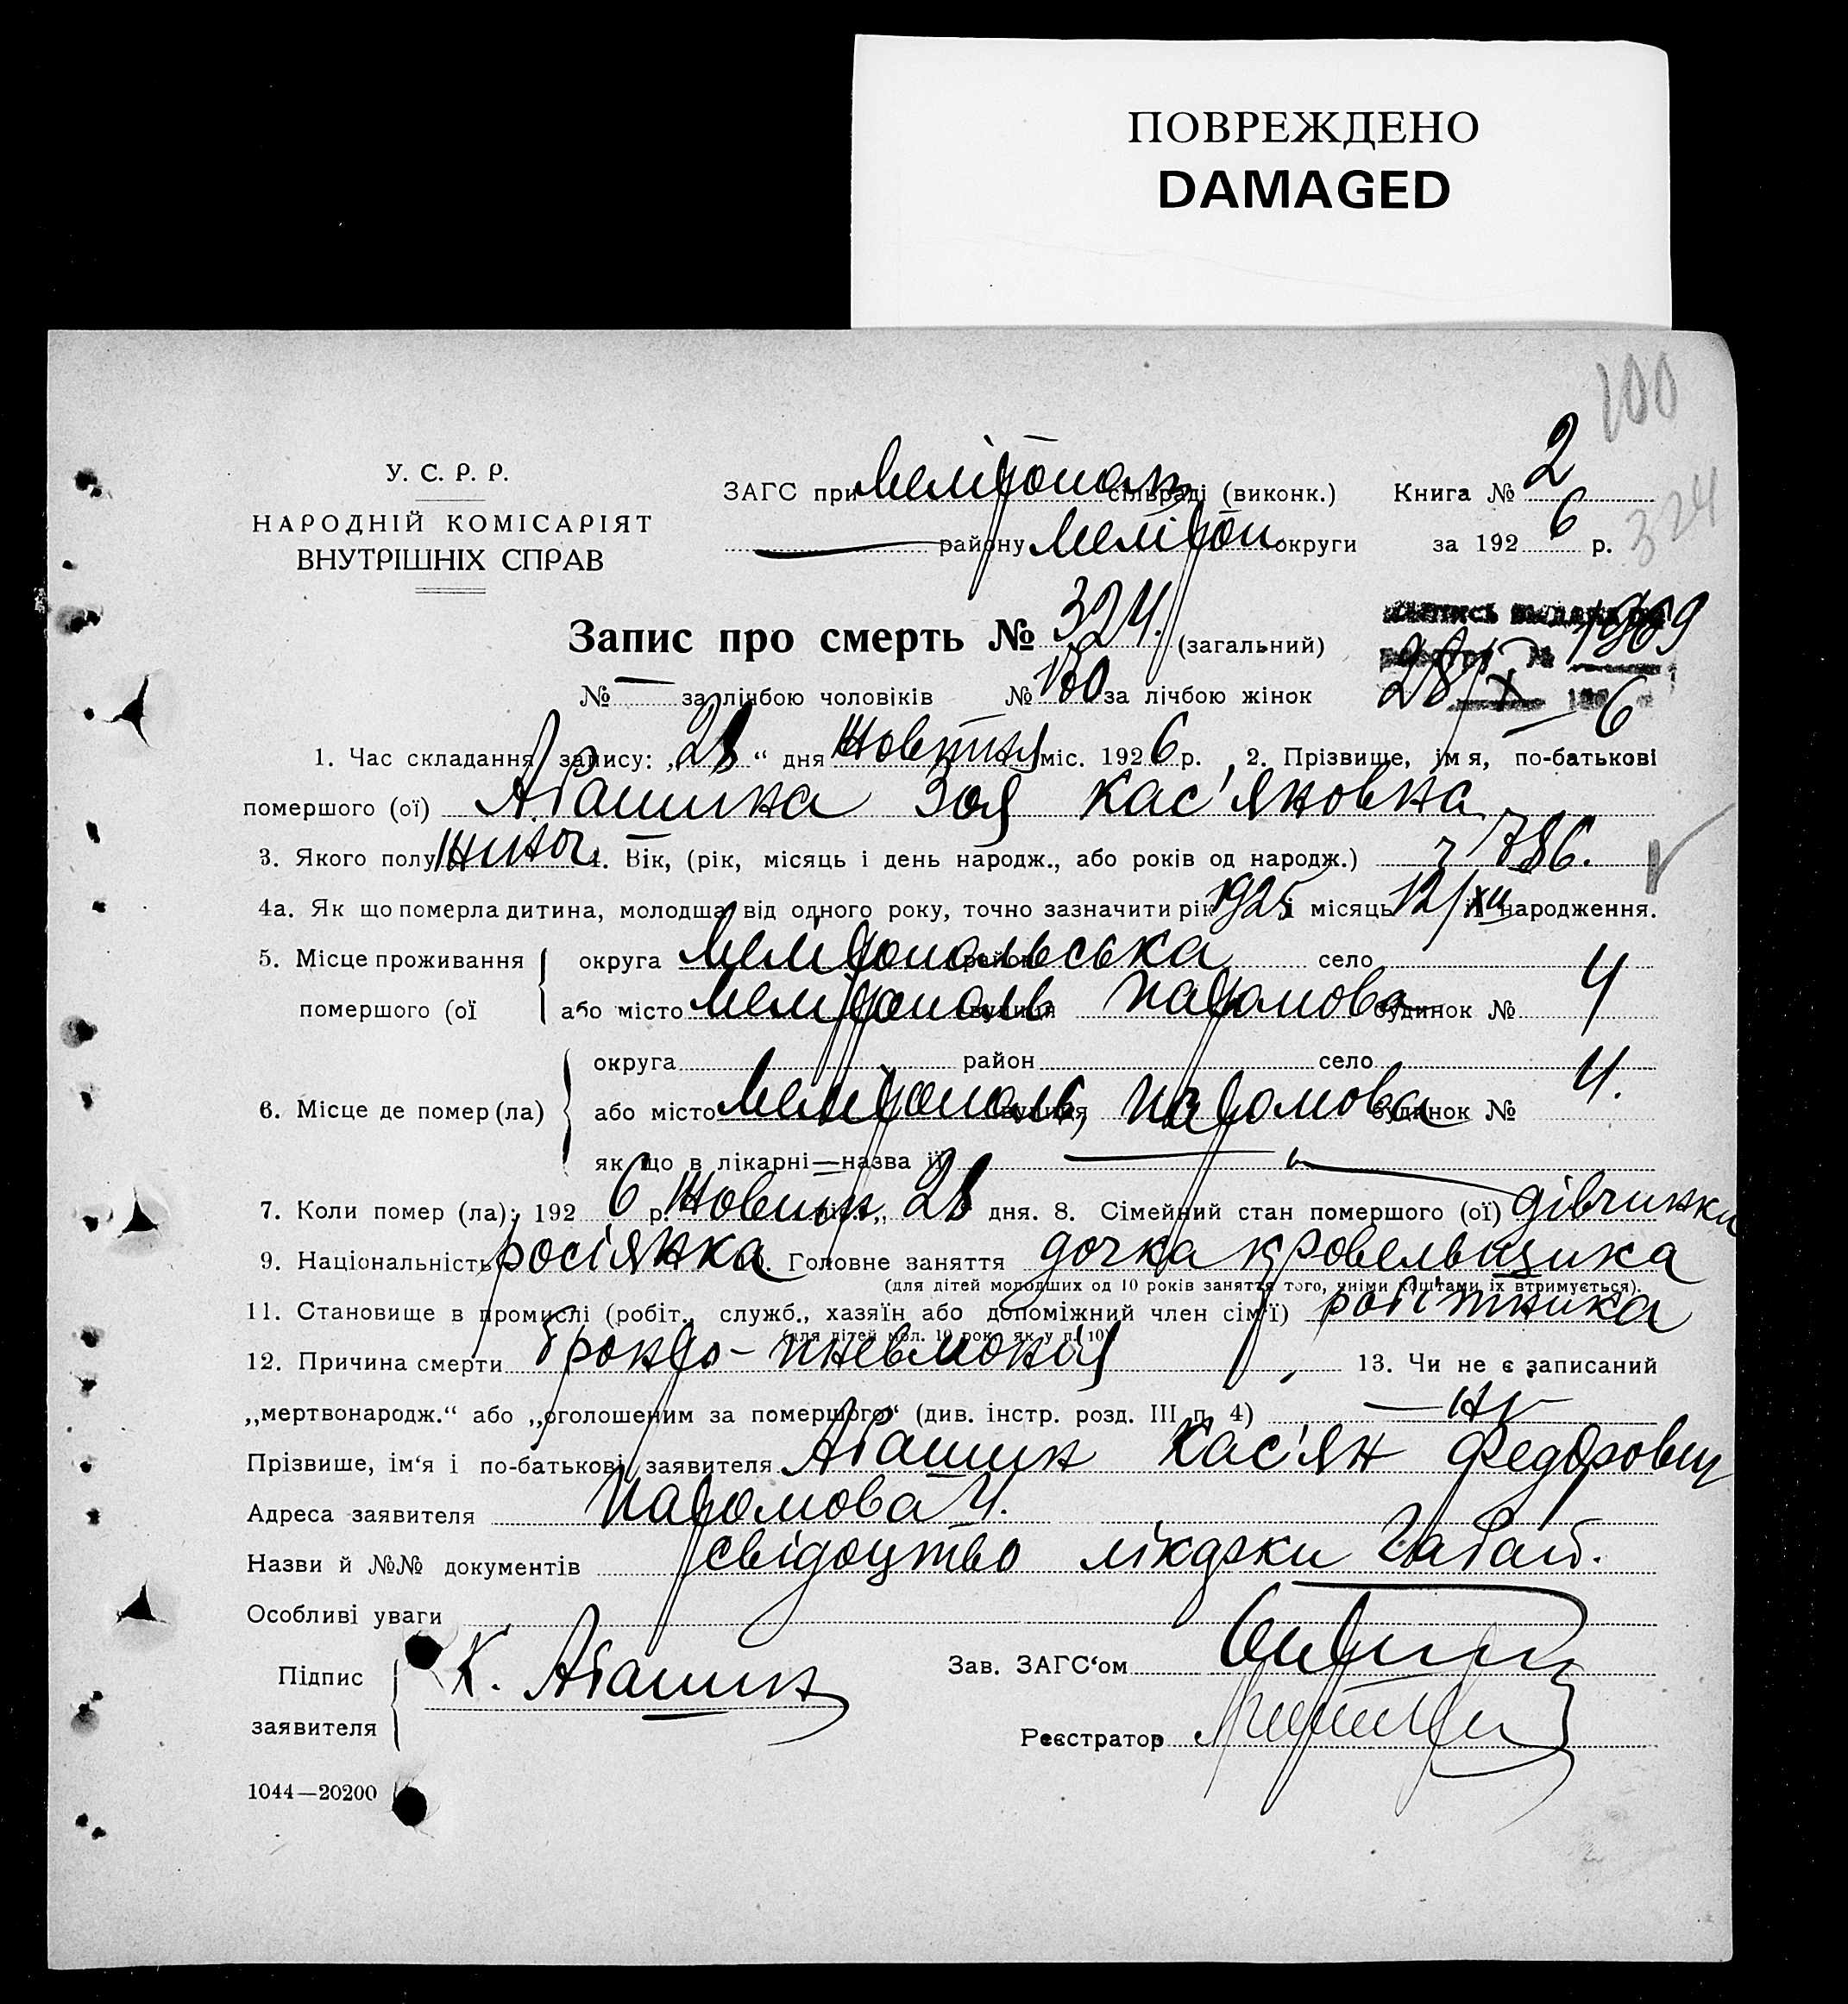 ПОВРЕЖДЕНО
DAMAGED
100
У. С. Р. Р.
НАРОДНІЙ КОМІСАРІЯТ
ВНУТРІШНІХ СПРАВ
ЗАГС при Мелітопол. сільраді (виконк.) Книга № 2
— району Меліто́п. округи за 192 6 р.
324
Запис про смерть № 324. (загальний)
1969
№ — за лічбою чоловіків № 150 за лічбою жінок
28/X 6
1. Час складання запису: „28“ дня Жовтня міс. 192 6 р. 2. Прізвище, ім я, по-батькові
помершого (ої) Абашина Зоя Кас'яновна
3. Якого полу жіноч. 4. Вік, (рік, місяць і день народж., або років од народж.)
4а. Як що померла дитина, молодша від одного року, точно зазначити рік 1925 і місяць 12/XII її народження.
5. Місце проживання округа Мелітопольська район село
помершого (ої або місто Мелітополь вулиця будинок № 4
округа район село
6. Місце де помер (ла) або місто Мелітополь, вулиця будинок № 4.
як що в лікарні—назва її —
7. Коли помер (ла): 192 6 р. Жовтн. міс. „ 28 дня. 8. Сімейний стан помершого (ої) дівчинка
9. Національність росіянка 10. Головне заняття дочка кровельщика
(для дітей молодших од 10 років заняття того, чиїми коштами їх втримується).
11. Становище в промислі (робіт., служб., хазяїн або допоміжний член сім'ї) робітника
(для дітей мол. 10 рок. як у п. 10)
12. Причина смерти бронхо-пневмонія 13. Чи не є записаний
„мертвонародж.“ або „оголошеним за помершого“ (див. інстр. розд. III п. 4) — ні —
Прізвище, ім‘я і по-батькові заявителя Абашин Кас'ян Федорович
Адреса заявителя 4.
Назви й №№ документів свідоцтво лікарки Габай.
Особливі уваги
Підпис К. Абашин
заявителя
Зав. ЗАГС‘ом
Реєстратор
1044—20200